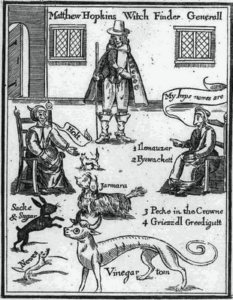 Matthew Hopkins Witch Finder Generall
My Imps names are
1 Ilemauzar
2 Pyewackett
Holt
Jarmara
Sacke & Sugar
3 Pecke in the Crowne
4 Griezzell Greedigutt
Newes
Vinegar tom